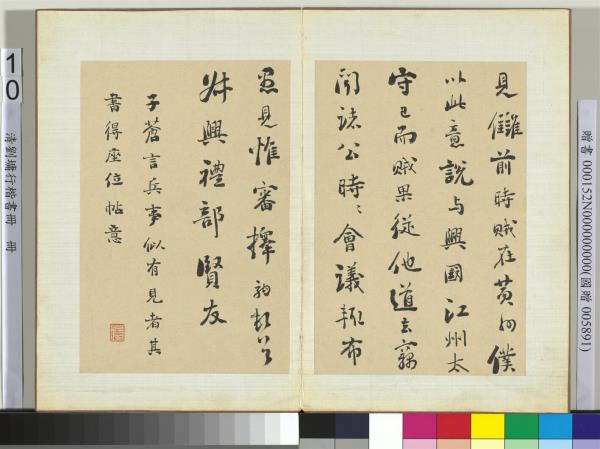 見讎前時賊在黃州僕
以此意說与興國江州太
守已而賊果從他道去竊
聞諸公時〻會議輙布
愚見惟審擇
幷興禮部賢友
子蒼言兵事似有見者其
書得座位帖意
10
清劉墉行楷書冊 冊
贈書 000152N000000000(國贈 005891)